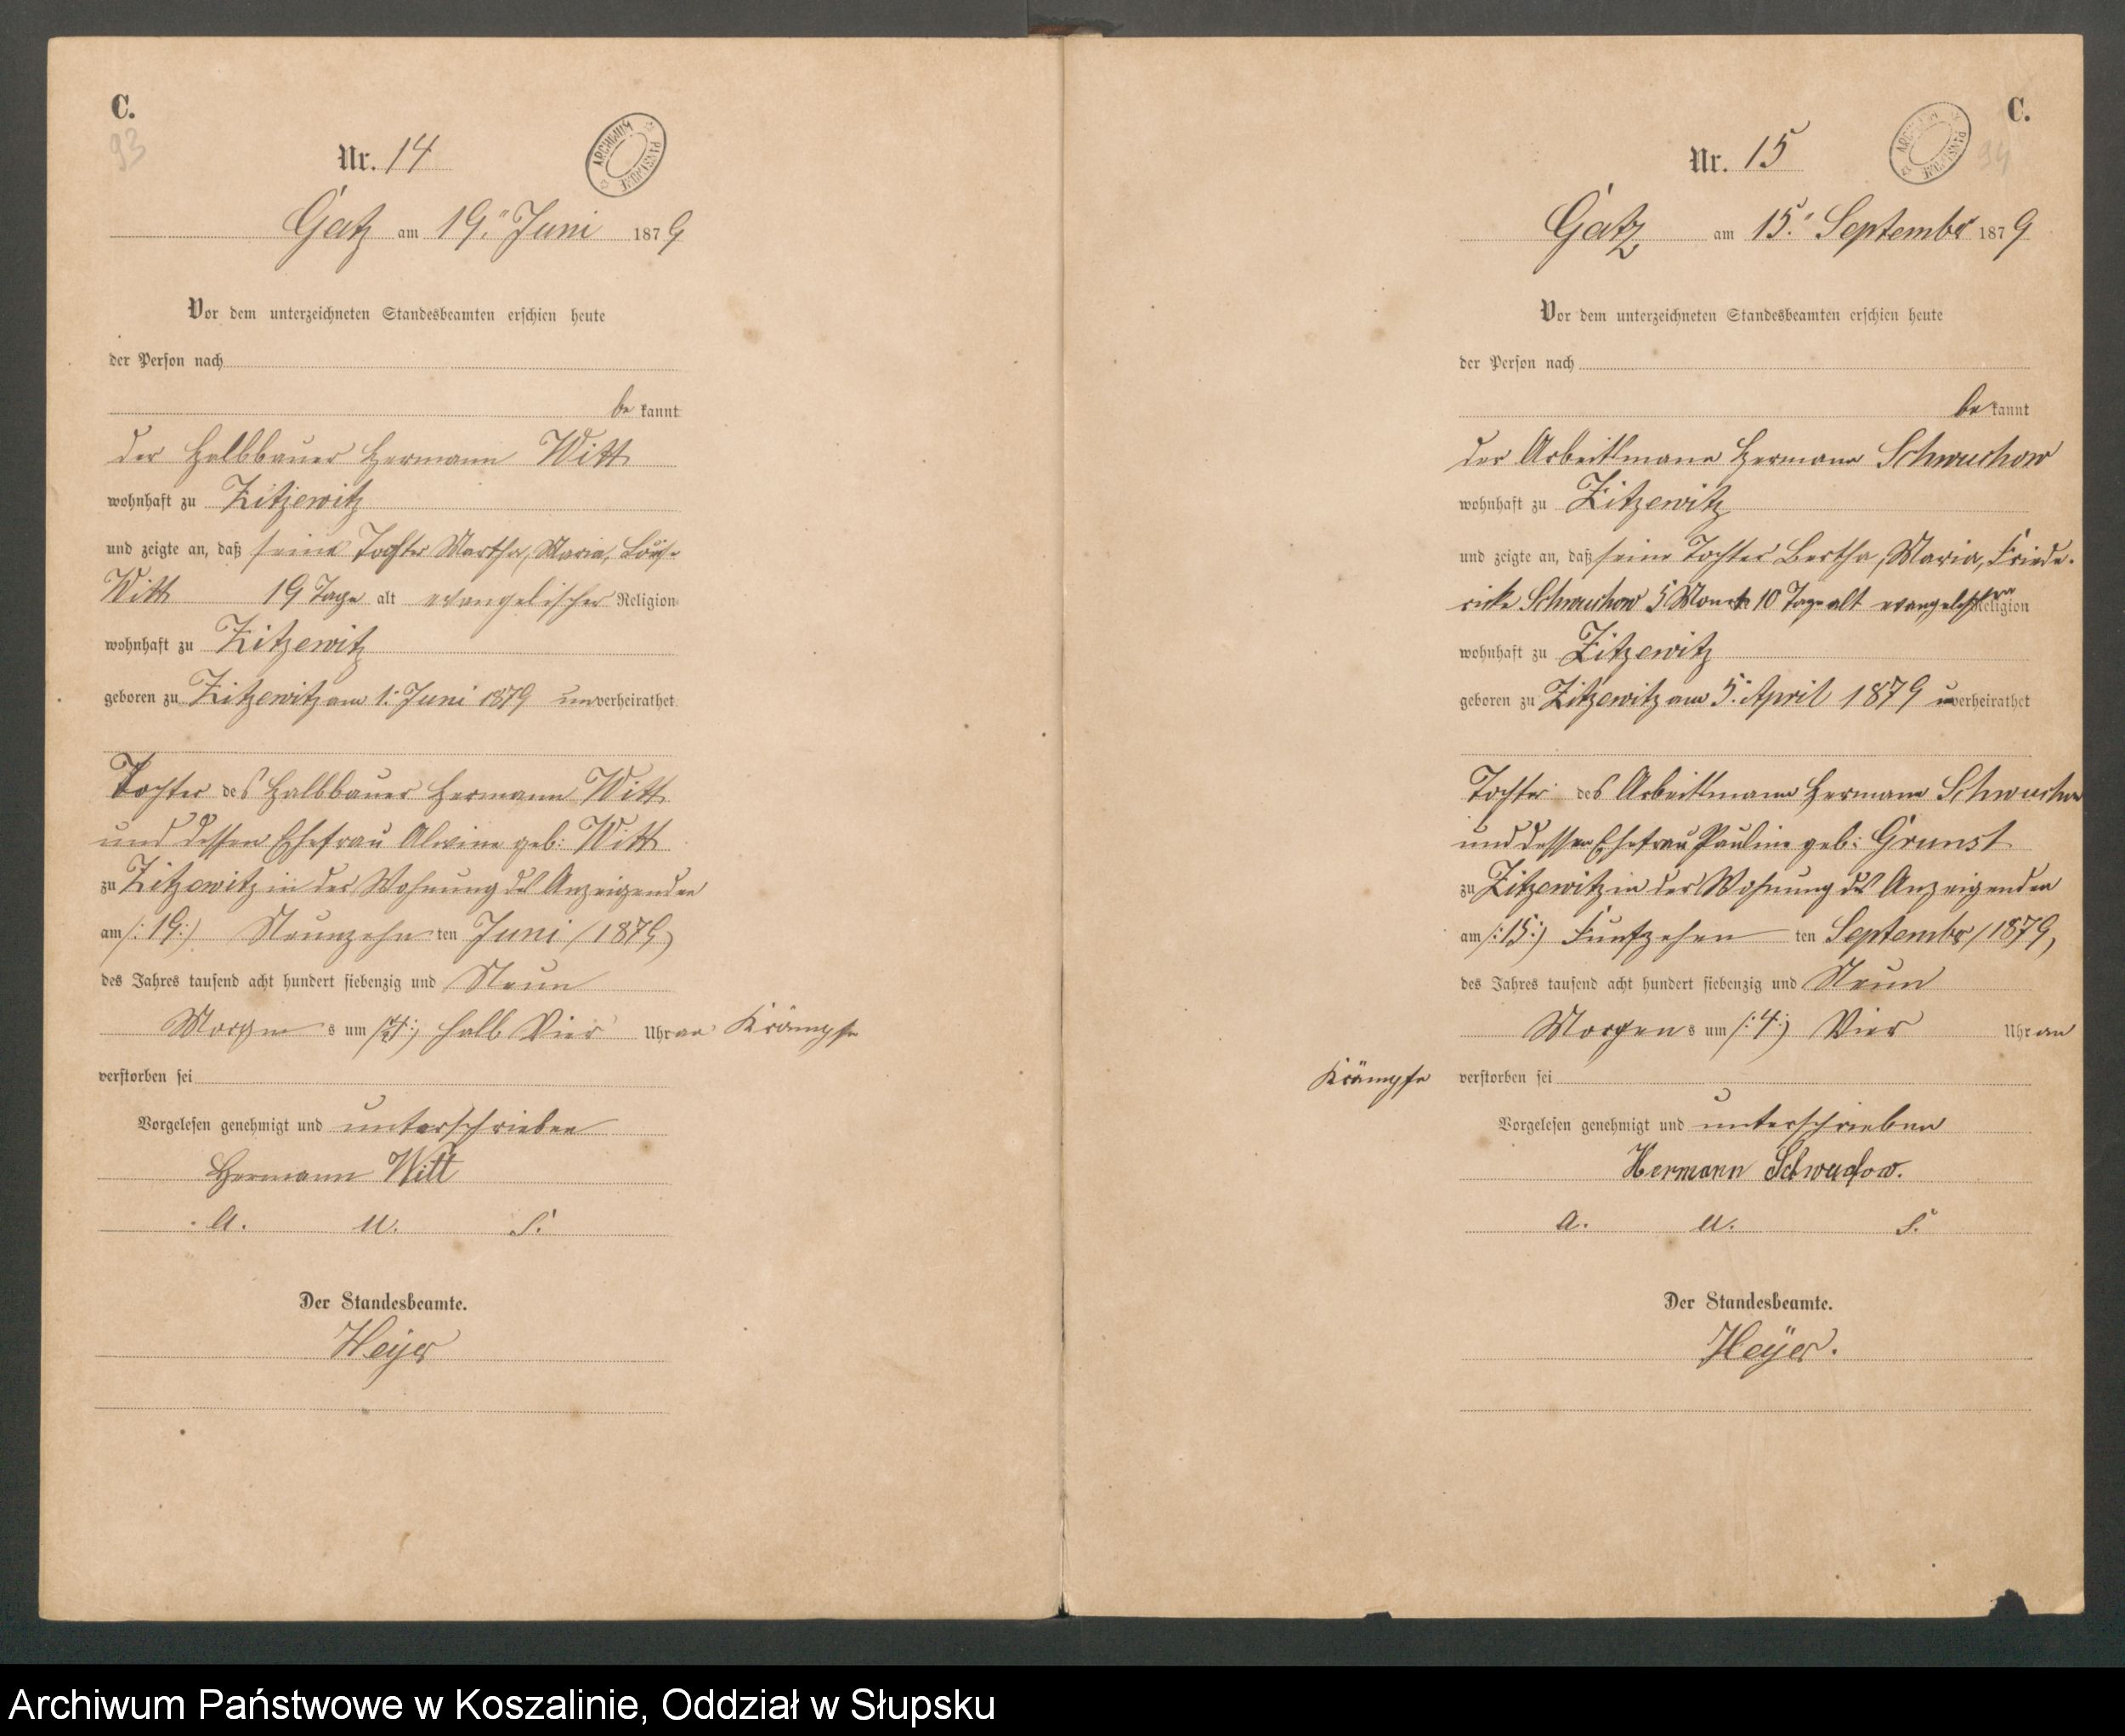 C.
93
Nr. 14
ARCHIWUM PAŃSTWOWE
Gatz am 19." Juni 1879
Vor dem unterzeichneten Standesbeamten erschien heute
der Person nach
be kannt
der Halbbauer Hermann Witt
wohnhaft zu Zitzewitz
und zeigte an, daß seine Tochter Martha, Maria, Louise
Witt 19 Tage alt evangelischer Religion
wohnhaft zu Zitzewitz
geboren zu Zitzewitz am 1. Juni 1879 unverheirathet
Tochter des Halbbauer Hermann Witt
und dessen Ehefrau Alwine geb: Witt
zu Zitzewitz in der Wohnung des Anzeigenden
am /:19:/ Neunzehn ten Juni /1879/
des Jahres tausend acht hundert siebenzig und Neun
Morgen s um halb Vier Uhr an Krämpfe
verstorben sei
Vorgelesen genehmigt und unterschrieben
Hermann Witt
A. u. S.
Der Standesbeamte.
Heyer
C.
94
Nr. 15
ARCHIWUM PAŃSTWOWE
Gatz am 15." September 1879
Vor dem unterzeichneten Standesbeamten erschien heute
der Person nach
be kannt
der Arbeitsmann Hermann Schwuchow
wohnhaft zu Zitzewitz
und zeigte an, daß seine Tochter Bertha, Maria, Friede-
ricke Schwuchow 5 Monate 10 Tage alt evangelischer Religion
wohnhaft zu Zitzewitz
geboren zu Zitzewitz am 5. April 1879 unverheirathet
Tochter des Arbeitsmann Hermann Schwuchow
und dessen Ehefrau Pauline geb: Grunst
zu Zitzewitz in der Wohnung des Anzeigenden
am /:15:/ Fünfzehen ten September /1879/
des Jahres tausend acht hundert siebenzig und Neun
Morgen s um /:4:/ Vier Uhr an
Krämpfe verstorben sei
Vorgelesen genehmigt und unterschrieben
Hermann Schwuchow.
A. u. S.
Der Standesbeamte.
Heÿer.
Archiwum Państwowe w Koszalinie, Oddział w Słupsku